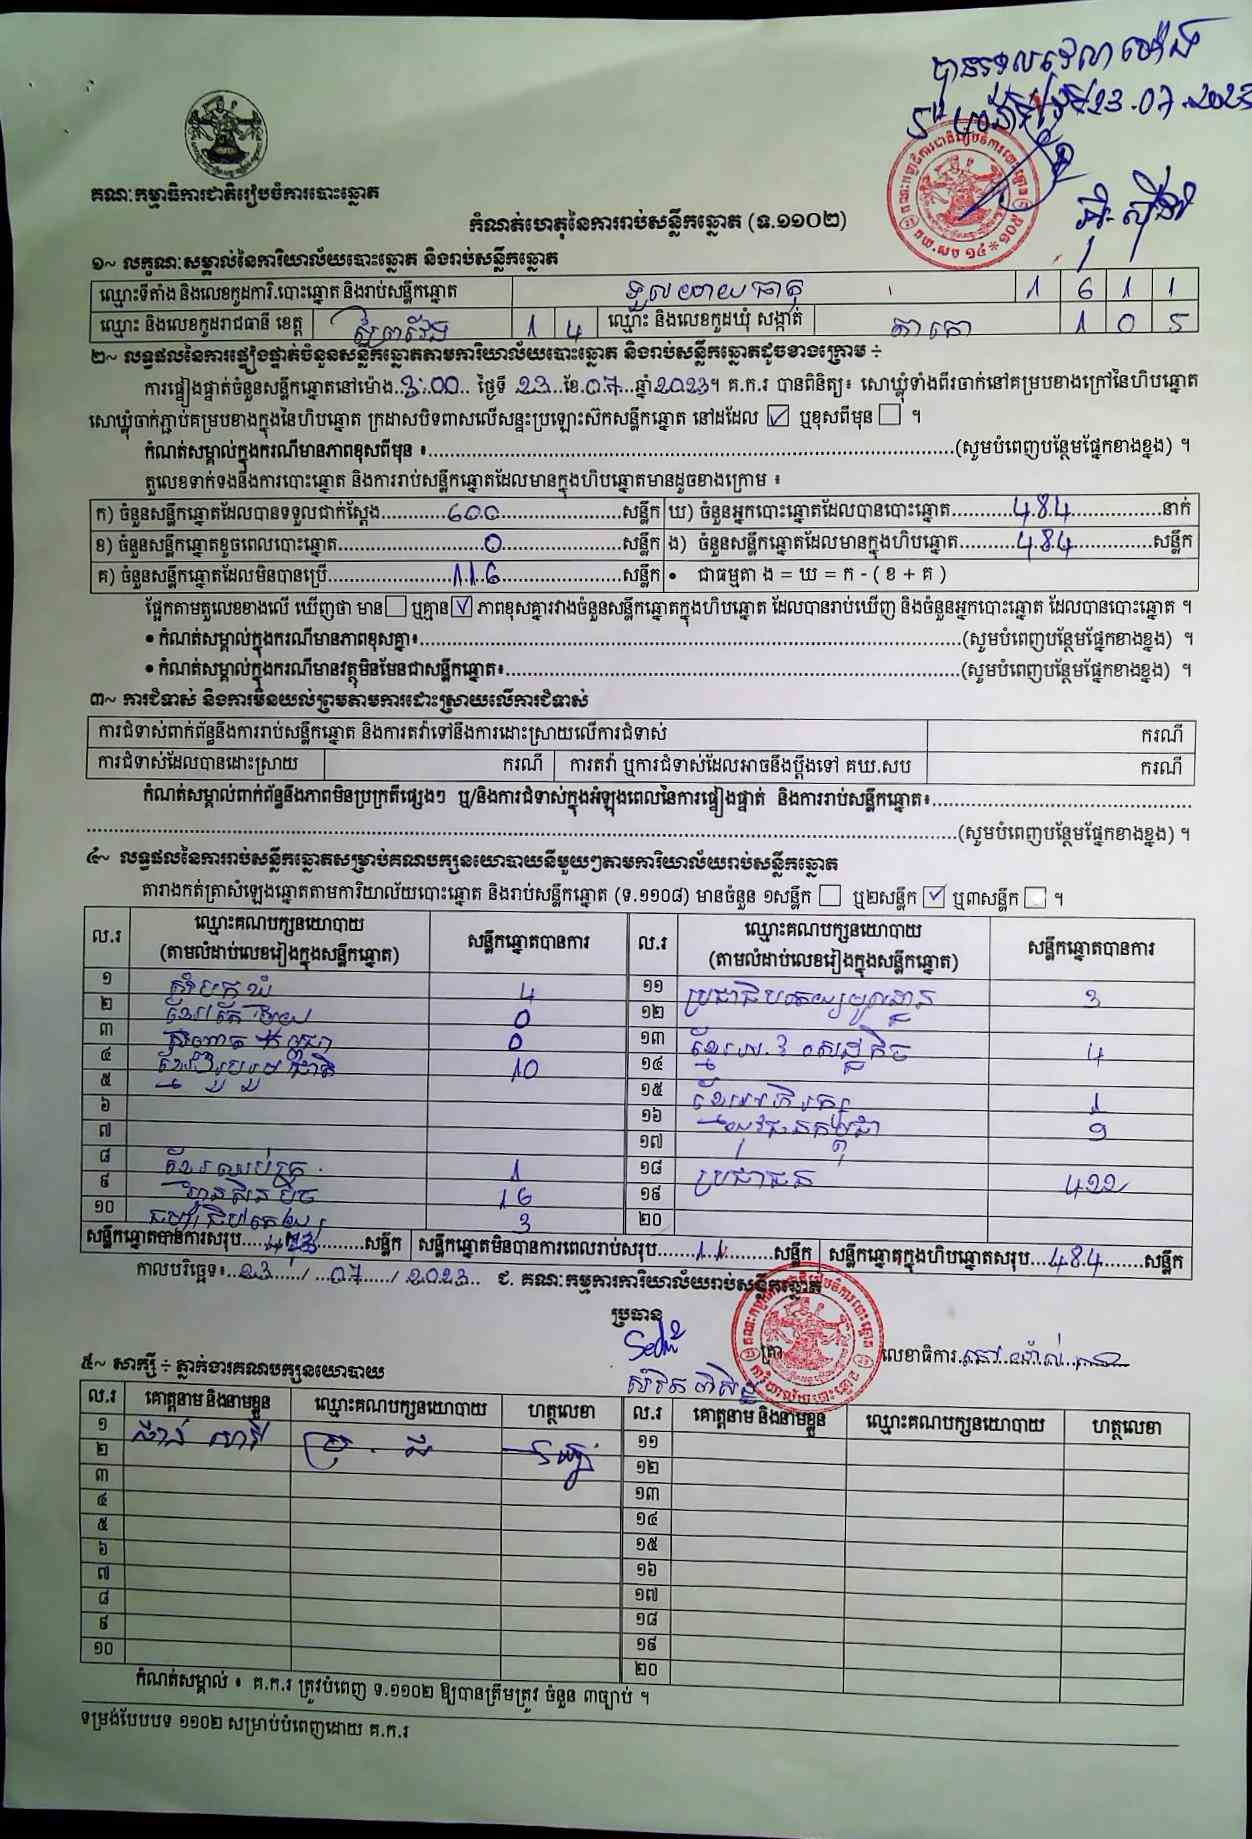 បានទទួលវេលាម៉ោង
23.07.2023
គណៈកម្មាធិការជាតិរៀបចំការបោះឆ្នោត
កំណត់ហេតុនៃការរាប់សន្លឹកឆ្នោត (ទ.១១០២)
១~ លក្ខណៈសម្គាល់នៃការិយាល័យបោះឆ្នោត និងរាប់សន្លឹកឆ្នោត
ឈ្មោះទីតាំង និងលេខកូដការិ.បោះឆ្នោត និងរាប់សន្លឹកឆ្នោត ទួល 1 6 1 1
ឈ្មោះ និងលេខកូដរាជធានី ខេត្ត ព្រៃវែង 1 4 ឈ្មោះ និងលេខកូដឃុំ សង្កាត់ តាកោ 1 0 5
២~ លទ្ធផលនៃការផ្ទៀងផ្ទាត់ចំនួនសន្លឹកឆ្នោតតាមការិយាល័យបោះឆ្នោត និងរាប់សន្លឹកឆ្នោតដូចខាងក្រោម ៖
ការផ្ទៀងផ្ទាត់ចំនួនសន្លឹកឆ្នោតនៅម៉ោង 3:00 ថ្ងៃទី 23 ខែ 07 ឆ្នាំ 2023។ គ.ក.រ បានពិនិត្យ៖ សោឃ្លុំទាំងពីរចាក់នៅគម្របខាងក្រៅនៃហិបឆ្នោត
សោឃ្លុំចាក់ភ្ជាប់គម្របខាងក្នុងនៃហិបឆ្នោត ក្រដាសបិទពាសលើសន្ទះប្រឡោះស៊កសន្លឹកឆ្នោត នៅដដែល ☑ ឬខុសពីមុន ☐ ។
កំណត់សម្គាល់ក្នុងករណីមានភាពខុសពីមុន ៖ (សូមបំពេញបន្ថែមផ្នែកខាងខ្នង) ។
តួលេខទាក់ទងនឹងការបោះឆ្នោត និងការរាប់សន្លឹកឆ្នោតដែលមានក្នុងហិបឆ្នោតមានដូចខាងក្រោម ៖
ក) ចំនួនសន្លឹកឆ្នោតដែលបានទទួលជាក់ស្តែង 600 សន្លឹក ឃ) ចំនួនអ្នកបោះឆ្នោតដែលបានបោះឆ្នោត 484 នាក់
ខ) ចំនួនសន្លឹកឆ្នោតខូចពេលបោះឆ្នោត 0 សន្លឹក ង) ចំនួនសន្លឹកឆ្នោតដែលមានក្នុងហិបឆ្នោត 484 សន្លឹក
គ) ចំនួនសន្លឹកឆ្នោតដែលមិនបានប្រើ 116 សន្លឹក • ជាធម្មតា ង = ឃ = ក - ( ខ + គ )
ផ្អែកតាមតួលេខខាងលើ ឃើញថា មាន ☐ ឬគ្មាន ☑ ភាពខុសគ្នារវាងចំនួនសន្លឹកឆ្នោតក្នុងហិបឆ្នោត ដែលបានរាប់ឃើញ និងចំនួនអ្នកបោះឆ្នោត ដែលបានបោះឆ្នោត ។
• កំណត់សម្គាល់ក្នុងករណីមានភាពខុសគ្នា៖ (សូមបំពេញបន្ថែមផ្នែកខាងខ្នង) ។
• កំណត់សម្គាល់ក្នុងករណីមានវត្ថុមិនមែនជាសន្លឹកឆ្នោត៖ (សូមបំពេញបន្ថែមផ្នែកខាងខ្នង) ។
៣~ ការជំទាស់ និងការមិនយល់ព្រមតាមការដោះស្រាយលើការជំទាស់
ការជំទាស់ពាក់ព័ន្ធនឹងការរាប់សន្លឹកឆ្នោត និងការតវ៉ាទៅនឹងការដោះស្រាយលើការជំទាស់ ករណី
ការជំទាស់ដែលបានដោះស្រាយ ករណី ការតវ៉ា ឬការជំទាស់ដែលអាចនឹងប្តឹងទៅ គឃ.សប ករណី
កំណត់សម្គាល់ពាក់ព័ន្ធនឹងភាពមិនប្រក្រតីផ្សេងៗ ឬ/និងការជំទាស់ក្នុងអំឡុងពេលនៃការផ្ទៀងផ្ទាត់ និងការរាប់សន្លឹកឆ្នោត៖
(សូមបំពេញបន្ថែមផ្នែកខាងខ្នង) ។
៤~ លទ្ធផលនៃការរាប់សន្លឹកឆ្នោតសម្រាប់គណបក្សនយោបាយនីមួយៗតាមការិយាល័យរាប់សន្លឹកឆ្នោត
តារាងកត់ត្រាសំឡេងឆ្នោតតាមការិយាល័យបោះឆ្នោត និងរាប់សន្លឹកឆ្នោត (ទ.១១០៨) មានចំនួន ១សន្លឹក ☐ ឬ២សន្លឹក ☑ ឬ៣សន្លឹក ☐ ។
ល.រ ឈ្មោះគណបក្សនយោបាយ (តាមលំដាប់លេខរៀងក្នុងសន្លឹកឆ្នោត) សន្លឹកឆ្នោតបានការ ល.រ ឈ្មោះគណបក្សនយោបាយ (តាមលំដាប់លេខរៀងក្នុងសន្លឹកឆ្នោត) សន្លឹកឆ្នោតបានការ
១ 4 ១១ ប្រជាធិបតេយ្យមូលដ្ឋាន 3
២ 0 ១២
៣ 0 ១៣ 4
៤ ខ្មែររួបរួមជាតិ 10 ១៤
៥ ១៥ 1
៦ ១៦ 9
៧ ១៧
៨ 1 ១៨ ប្រជាជន 422
៩ ហ៊្វុនស៊ិនប៉ិច 16 ១៩
១០ 3 ២០
សន្លឹកឆ្នោតបានការសរុប 473 សន្លឹក សន្លឹកឆ្នោតមិនបានការពេលរាប់សរុប 11 សន្លឹក សន្លឹកឆ្នោតក្នុងហិបឆ្នោតសរុប 484 សន្លឹក
កាលបរិច្ឆេទ៖ 23 / 07 / 2023 ជ. គណៈកម្មការការិយាល័យរាប់សន្លឹកឆ្នោត
ប្រធាន
ត្រា លេខាធិការ
៥~ សាក្សី ÷ ភ្នាក់ងារគណបក្សនយោបាយ
ល.រ គោត្តនាម និងនាមខ្លួន ឈ្មោះគណបក្សនយោបាយ ហត្ថលេខា ល.រ គោត្តនាម និងនាមខ្លួន ឈ្មោះគណបក្សនយោបាយ ហត្ថលេខា
១ ប្រ.ជ ១១
២ ១២
៣ ១៣
៤ ១៤
៥ ១៥
៦ ១៦
៧ ១៧
៨ ១៨
៩ ១៩
១០ ២០
កំណត់សម្គាល់ ៖ គ.ក.រ ត្រូវបំពេញ ទ.១១០២ ឱ្យបានត្រឹមត្រូវ ចំនួន ៣ច្បាប់ ។
ទម្រង់បែបបទ ១១០២ សម្រាប់បំពេញដោយ គ.ក.រ